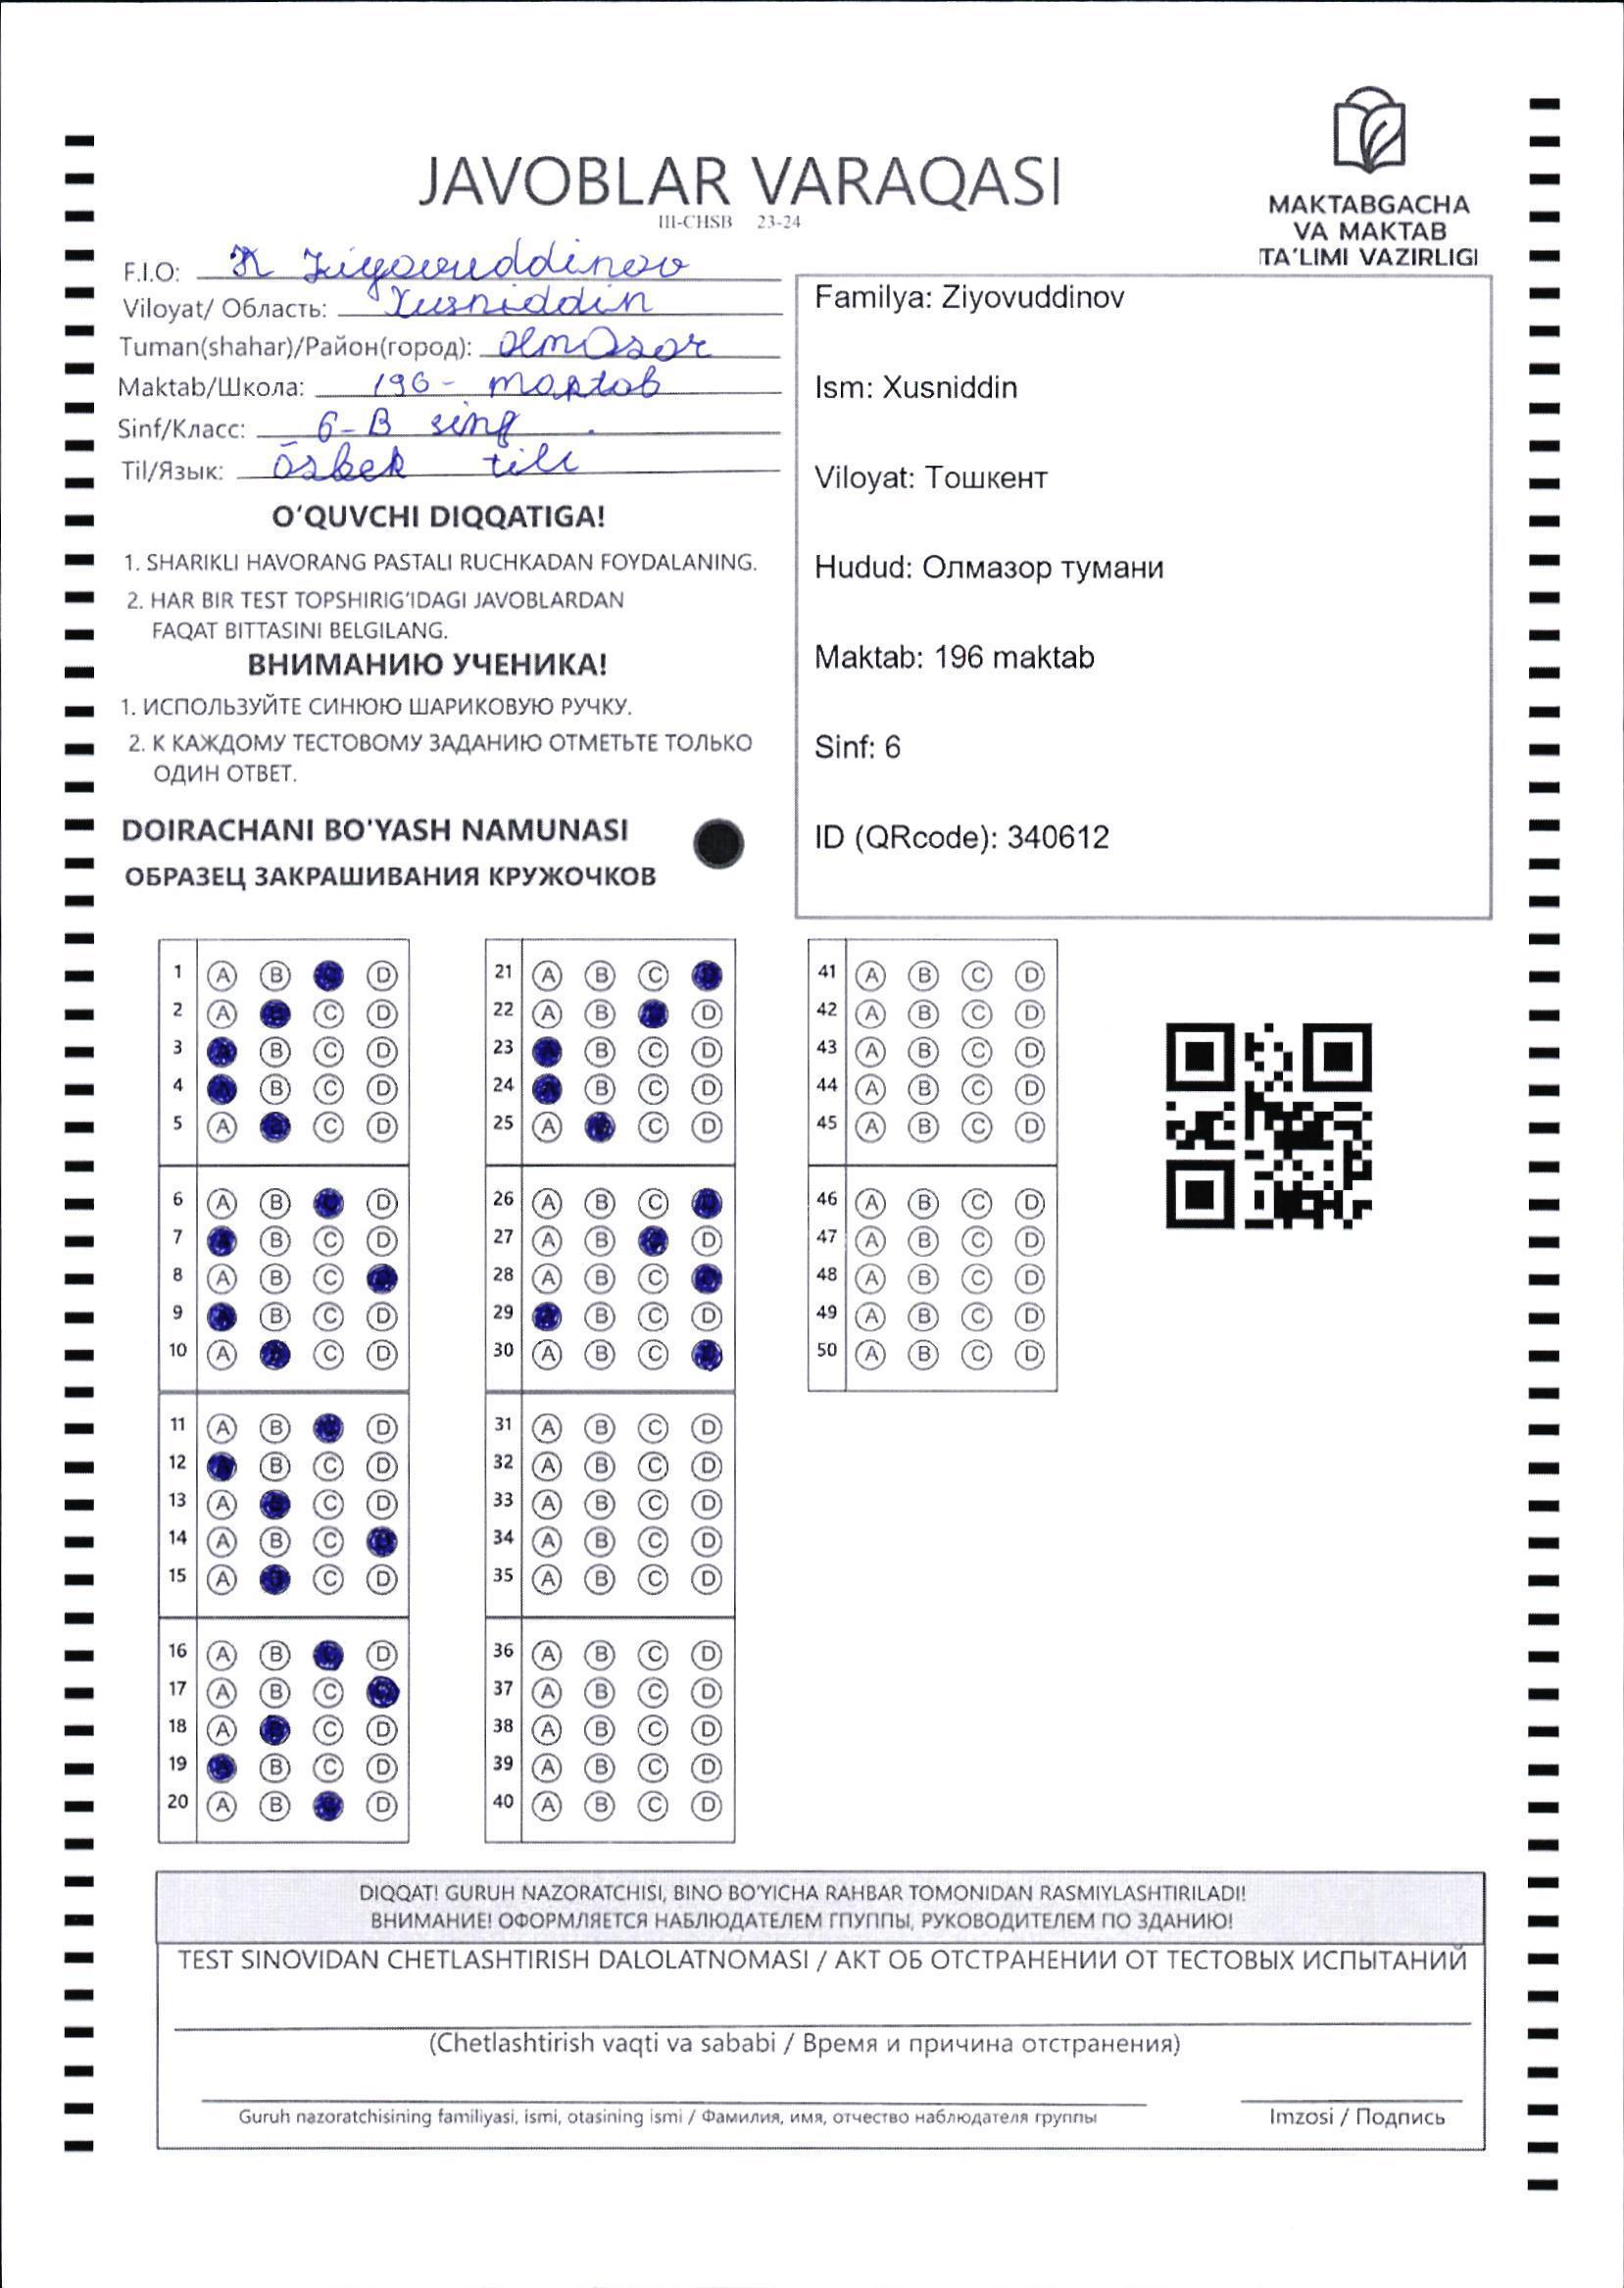 JAVOBLAR VARAQASI
III-CHSB 23-24
MAKTABGACHA
VA MAKTAB
TA'LIMI VAZIRLIGI
F.I.O: Ziyovuddinov
Viloyat/ Область: Xusniddin
Tuman(shahar)/Район(город): Olmosor
Maktab/Школа: 196- maktab
Sinf/Класс: 6-B sinf
Til/Язык: õzbek tili
O‘QUVCHI DIQQATIGA!
1. SHARIKLI HAVORANG PASTALI RUCHKADAN FOYDALANING.
2. HAR BIR TEST TOPSHIRIG'IDAGI JAVOBLARDAN
FAQAT BITTASINI BELGILANG.
ВНИМАНИЮ УЧЕНИКА!
1. ИСПОЛЬЗУЙТЕ СИНЮЮ ШАРИКОВУЮ РУЧКУ.
2. К КАЖДОМУ ТЕСТОВОМУ ЗАДАНИЮ ОТМЕТЬТЕ ТОЛЬКО
ОДИН ОТВЕТ.
DOIRACHANI BO'YASH NAMUNASI
ОБРАЗЕЦ ЗАКРАШИВАНИЯ КРУЖОЧКОВ
Familya: Ziyovuddinov
Ism: Xusniddin
Viloyat: Тошкент
Hudud: Олмазор тумани
Maktab: 196 maktab
Sinf: 6
ID (QRcode): 340612
1 A B D
2 A C D
3 B C D
4 B C D
5 A C D
6 A B D
7 B C D
8 A B C
9 B C D
10 A C D
11 A B D
12 B C D
13 A C D
14 A B C
15 A C D
16 A B D
17 A B C
18 A C D
19 B C D
20 A B D
21 A B C
22 A B D
23 B C D
24 B C D
25 A C D
26 A B C
27 A B D
28 A B C
29 B C D
30 A B C
31 A B C D
32 A B C D
33 A B C D
34 A B C D
35 A B C D
36 A B C D
37 A B C D
38 A B C D
39 A B C D
40 A B C D
41 A B C D
42 A B C D
43 A B C D
44 A B C D
45 A B C D
46 A B C D
47 A B C D
48 A B C D
49 A B C D
50 A B C D
DIQQAT! GURUH NAZORATCHISI, BINO BO'YICHA RAHBAR TOMONIDAN RASMIYLASHTIRILADI!
ВНИМАНИЕ! ОФОРМЛЯЕТСЯ НАБЛЮДАТЕЛЕМ ГПУППЫ, РУКОВОДИТЕЛЕМ ПО ЗДАНИЮ!
TEST SINOVIDAN CHETLASHTIRISH DALOLATNOMASI / АКТ ОБ ОТСТРАНЕНИИ ОТ ТЕСТОВЫХ ИСПЫТАНИЙ
(Chetlashtirish vaqti va sababi / Время и причина отстранения)
Guruh nazoratchisining familiyasi, ismi, otasining ismi / Фамилия, имя, отчество наблюдателя группы
Imzosi / Подпись